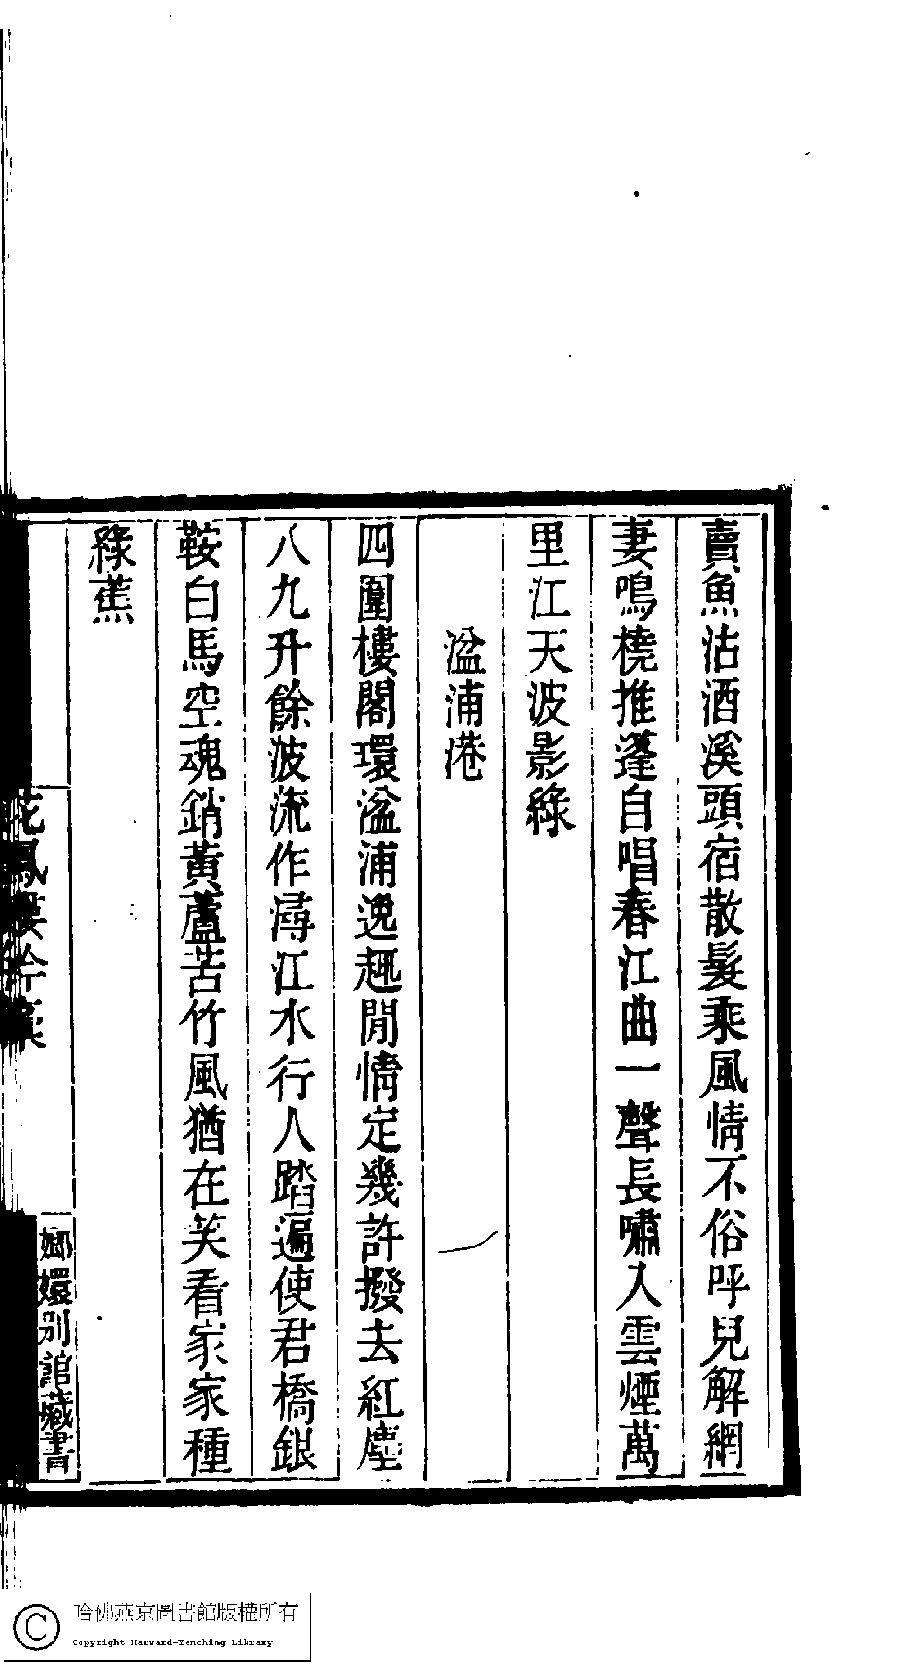 賣魚沽酒溪頭宿散髮乘風情不俗呼兒解網
妻鳴橈推蓬自唱春江曲一聲長嘯入雲煙萬
里江天波影綠
湓浦港
四圍樓閣環湓浦逸趣閒情定幾許撥去紅塵
八九升餘波流作潯江水行人踏遍使君橋銀
鞍白馬空魂銷黃蘆苦竹風猶在笑看家家種
綠蕉
花鳳樓吟稾
嫏嬛別館藏書
哈佛燕京圖書館版權所有
Copyright Harvard-Yenching Library